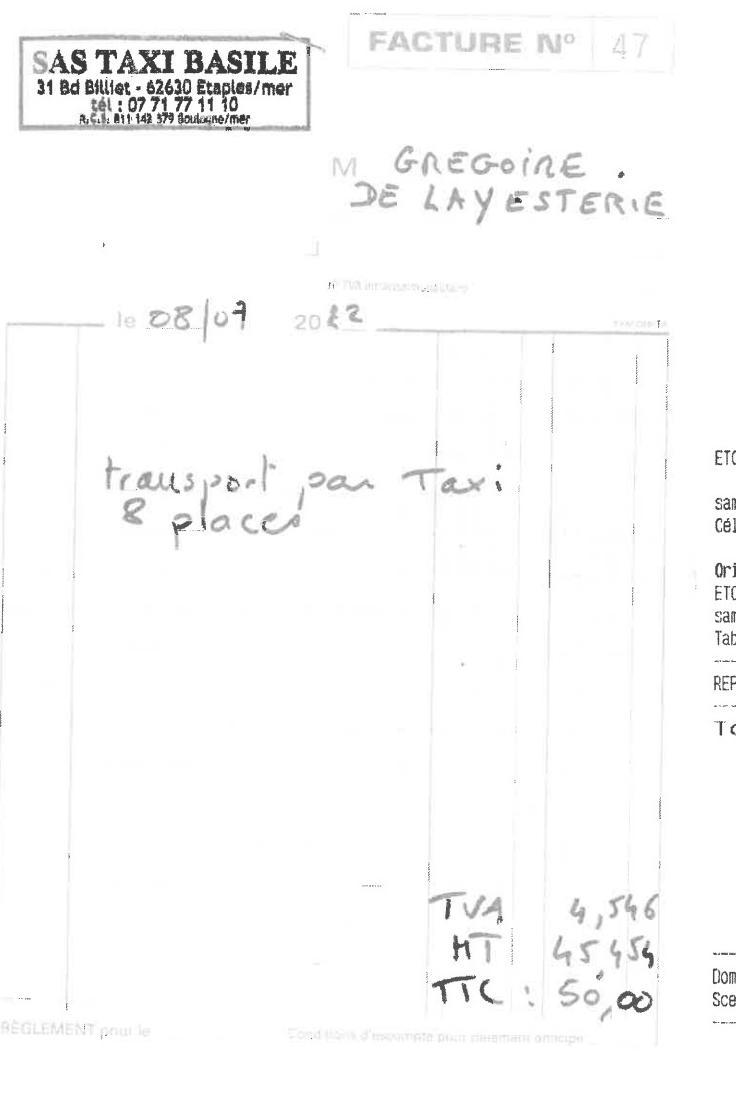 SAS TAXI BASILE
31 Bd Billiet - 62630 Etaples/mer
tél : 07 71 77 11 10
R.C.S. 811 142 579 Boulogne/mer
FACTURE N° 47
M GREGOIRE .
DE LAYESTERIE
n° TVA intracommunautaire
le 08/07 2022
transport par Taxi
8 places
TVA 4,546
HT 45,454
TTC : 50,00
RÈGLEMENT pour le
Conditions d'escompte pour paiement anticipé
ETO
sam
Cél
Ori
ETO
sam
Tab
REP
To
Dom
Sce